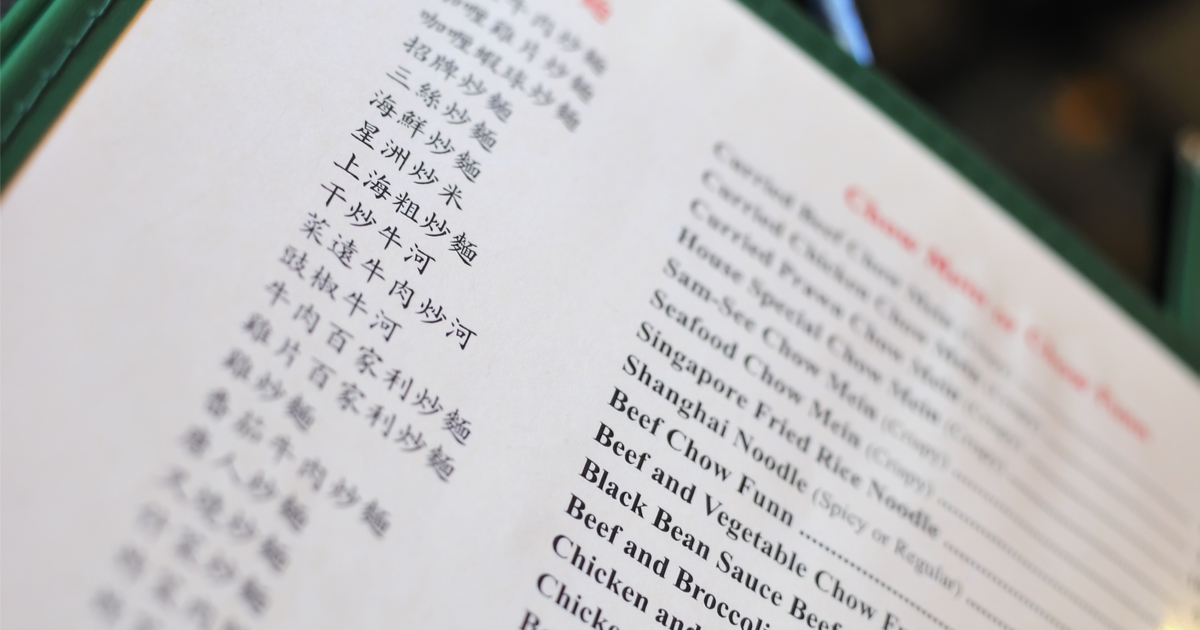 牛肉炒麵
咖喱雞片炒麵
咖喱蝦球炒麵
招牌炒麵
三絲炒麵
海鮮炒麵
星洲炒米
上海粗炒麵
干炒牛河
菜遠牛肉炒河
豉椒牛河
牛肉百家利炒麵
雞片百家利炒麵
雞炒麵
番茄牛肉炒麵
唐人炒麵
Chow Mein or Chow Funn
Curried Beef Chow Mein
Curried Chicken Chow Mein
Curried Prawn Chow Mein (Crispy)
House Special Chow Mein (Crispy)
Sam-See Chow Mein (Crispy)
Seafood Chow Mein (Crispy)
Singapore Fried Rice Noodle
Shanghai Noodle (Spicy or Regular)
Beef Chow Funn
Beef and Vegetable Chow
Black Bean Sauce Beef
Beef and Broccoli
Chicken and